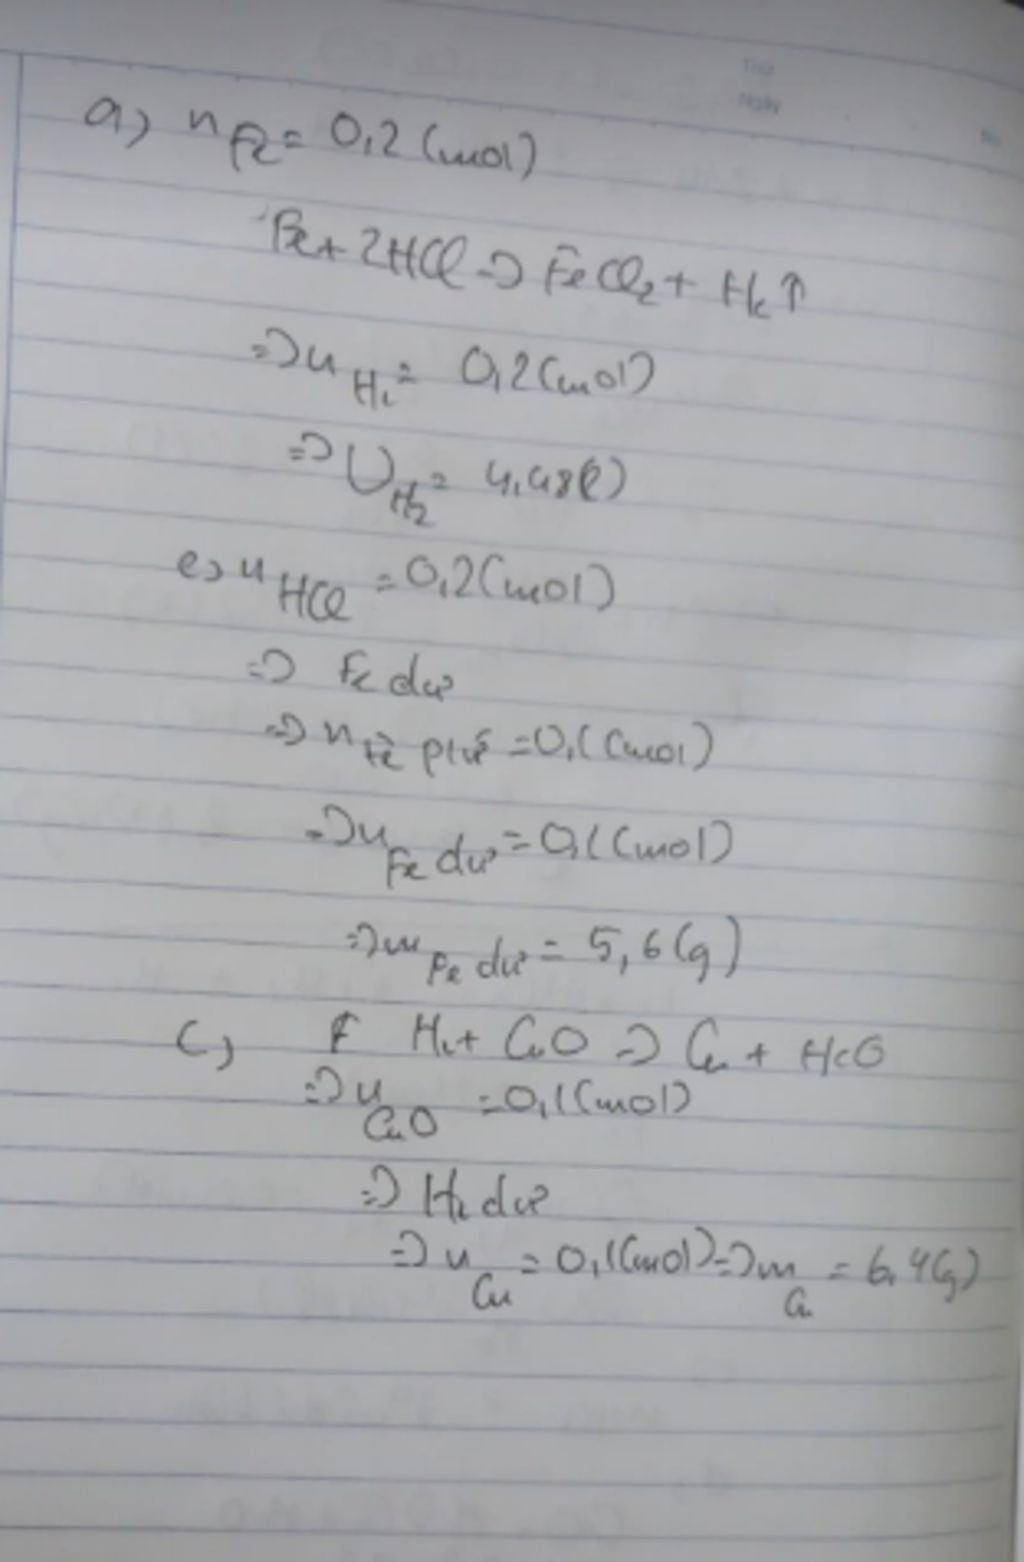 a) n Fe = 0,2 (mol)
Fe + 2HCl => FeCl2 + H2 ↑
=> n H2 = 0,2 (mol)
=> V H2 = 4,48 (l)
e) n HCl = 0,2 (mol)
=> Fe dư
=> n Fe pứ = 0,1 (mol)
=> n Fe dư = 0,1 (mol)
=> m Fe dư = 5,6 (g)
c) H2 + CuO => Cu + H2O
=> n CuO = 0,1 (mol)
=> H2 dư
=> n Cu = 0,1 (mol) => m Cu = 6,4 (g)